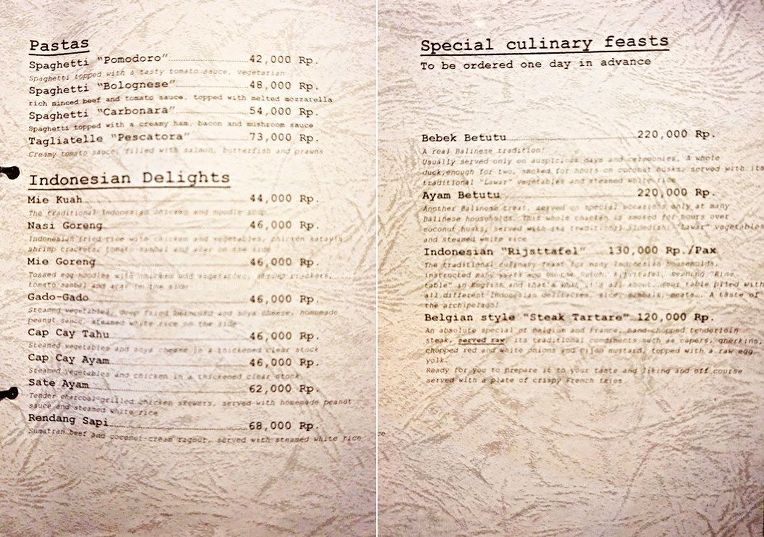 Pastas
Spaghetti "Pomodoro" 42,000 Rp.
Spaghetti topped with a tasty tomato sauce, vegetarian
Spaghetti "Bolognese" 48,000 Rp.
rich minced beef and tomato sauce, topped with melted mozzarella
Spaghetti "Carbonara" 54,000 Rp.
Spaghetti topped with a creamy ham, bacon and mushroom sauce
Tagliatelle "Pescatora" 73,000 Rp.
Creamy tomato sauce, filled with salmon, butterfish and prawns
Indonesian Delights
Mie Kuah 44,000 Rp.
The traditional Indonesian chicken and noodle soup
Nasi Goreng 46,000 Rp.
Indonesian fried rice with chicken and vegetables, chicken
shrimp crackers, tomato sambal and acar on the side
Mie Goreng 46,000 Rp.
Tossed egg noodles with chicken and vegetables, shrimp crackers,
tomato sambal and acar on the side
Gado-Gado 46,000 Rp.
Steamed vegetables, deep fried beancurd and soya cheese, homemade
peanut sauce, steamed white rice on the side
Cap Cay Tahu 46,000 Rp.
Steamed vegetables and soya cheese in a thickened clear stock
Cap Cay Ayam 46,000 Rp.
Steamed vegetables and chicken in a thickened clear stock
Sate Ayam 62,000 Rp.
Tender charcoal-grilled chicken skewers, served with homemade peanut
sauce and steamed white rice
Rendang Sapi 68,000 Rp.
Sumatran beef and coconut-cream ragout, served with steamed white rice
Special culinary feasts
To be ordered one day in advance
Bebek Betutu 220,000 Rp.
A real Balinese tradition!
Usually served only on auspicious days and ceremonies. A whole
duck, enough for two, smoked for hours on coconut husks, served with its
traditional "Lawar" vegetables and steamed white rice
Ayam Betutu 220,000 Rp.
Another Balinese treat, served on special occasions only at many
Balinese households. This whole chicken is smoked for hours over
coconut husks, served with its traditional "Lawar" vegetables
and steamed white rice
Indonesian "Rijsttafel" 130,000 Rp./Pax
The traditional culinary feast for many Indonesian households,
instructed many years ago by the Dutch. Rijsttafel, meaning "Rice
table" in English and that's what it's all about. Your table filled with
all different Indonesian delicacies, rice, sambals, meats... A taste of
the archipelago!
Belgian style "Steak Tartare" 120,000 Rp.
An absolute special of Belgium and France, hand-chopped tenderloin
steak, served raw, its traditional condiments such as capers, gherkins,
chopped red and white onions and Dijon mustard, topped with a raw egg
yolk.
Ready for you to prepare it to your taste and liking and off course
served with a plate of crispy French fries.